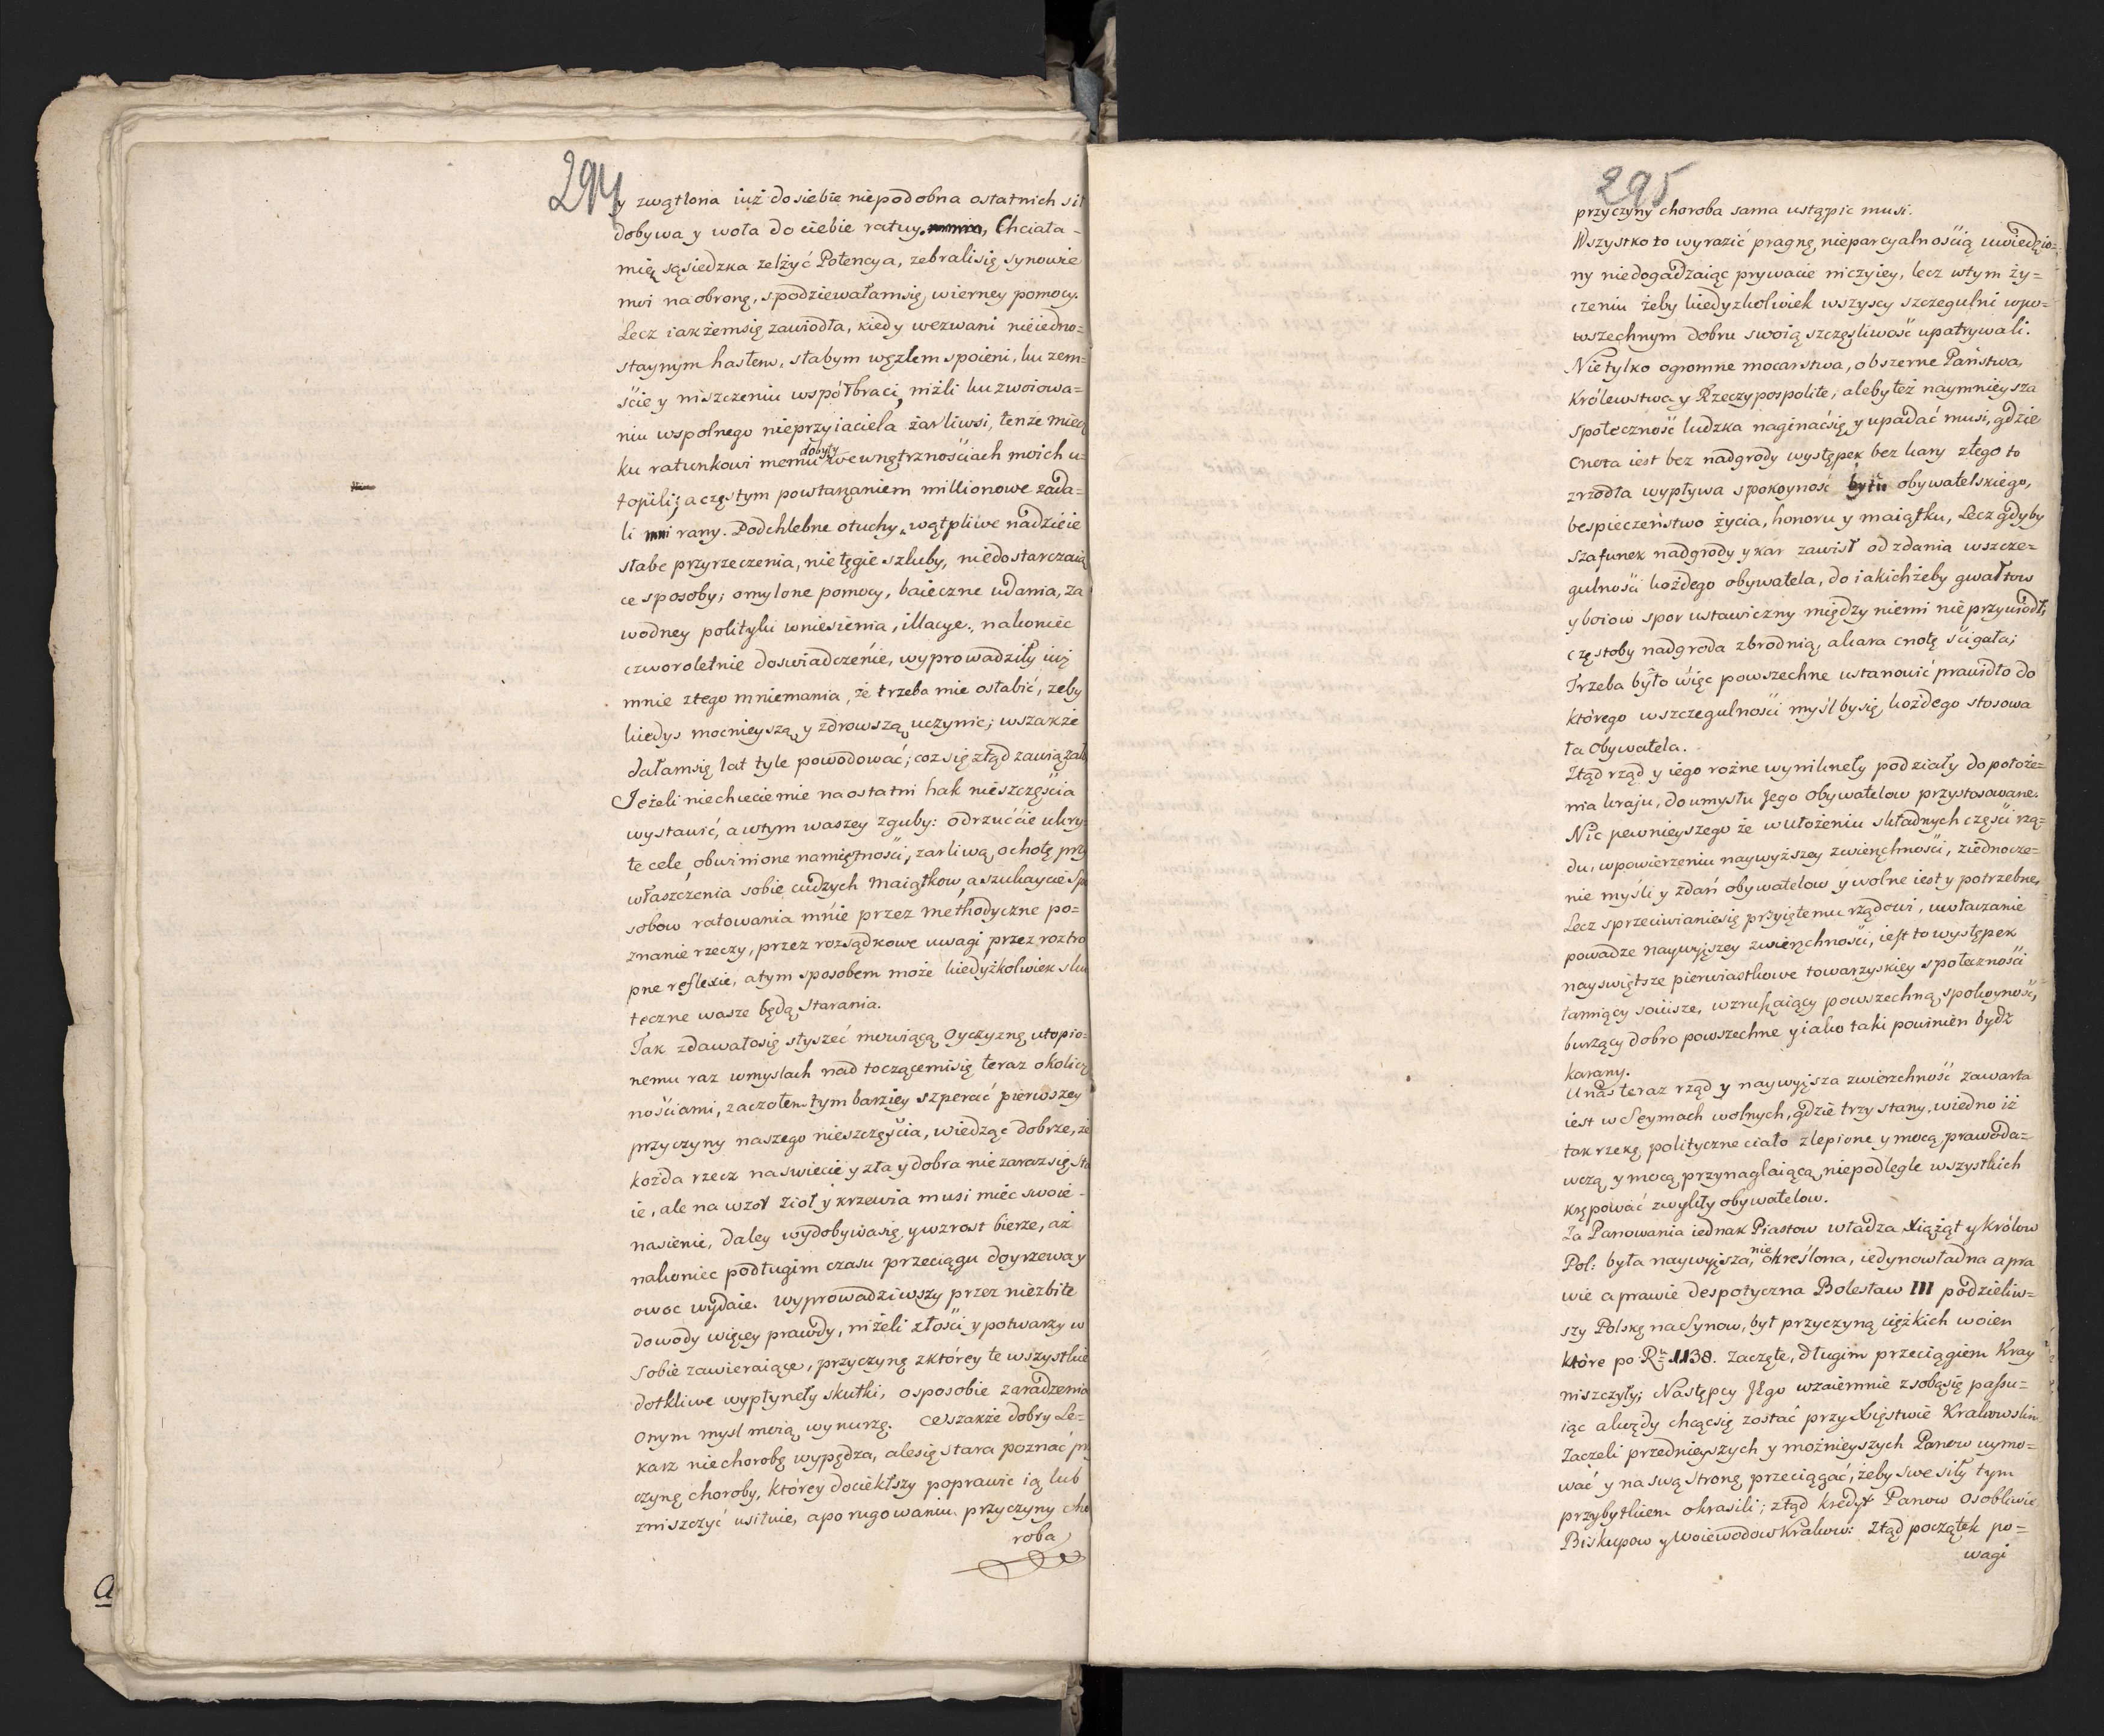 294
y zwątlona iuż do siebie niepodobna ostatnich sił
dobywa y woła do ciebie ratuy, Chciała-
mię sąsiedzka zelżyć Potencya, zebrali się synowie
moi na obronę, spodziewałam się wierney pomocy.
Lecz iakżem się zawiodła, kiedy wezwani nieiedno=
staynym hasłem, słabym węzłem spoieni, ku zem=
ście y niszczeniu współbraci, niżli ku zwoiowa=
niu wspolnego nieprzyiaciela żarliwsi, tenże miecz
ku ratunkowi memu dobyty we wnętrznościach moich u=
topili; a częstym powtarzaniem millionowe zada=
li rany. Podchlebne otuchy, wątpliwe nadzieie
słabe przyrzeczenia, nie tęgie szluby, niedostarczaią
ce sposoby; omylone pomocy, baieczne udania, za
wodney polityki wniesienia, illacye, nakoniec
czworoletnie doswiadczenie, wyprowadziły iuż
mnie z tego mniemania, że trzeba mie osłabić, zeby
kiedys mocnieyszą y zdrowszą uczynic; wszakże
dałam się lat tyle powodować; coz się ztąd zawiązało
Jeżeli niechcecie mie na ostatni hak nieszczęścia
wystawić, a wtym waszey zguby: odrzućcie ukry=
te cele, obwinione namiętności, żarliwą ochotę przy
właszczenia sobie cudzych maiątkow, a szukaycie spo
sobow ratowania mnie przez methodyczne po=
znanie rzeczy, przez rozsądkowe uwagi przez roztro
pne reflexie, a tym sposobem może kiedyżkolwiek sku
teczne wasze będą starania.
Tak zdawało się słyszeć mowiącą Oyczyznę utopio=
nemu raz w myslach nad toczącemi się teraz okolicz
nościami, zaczołem tym barziey szperać pierwszey
przyczyny naszego nieszczęścia, wiedząc dobrze, że
kożda rzecz na swiecie y zła y dobra nie zaraz się sta
ie, ale na wzór zioł y krzewia musi miec swoie -
nasienie, daley wydobywa się, y wzrost bierze, aż
nakoniec podługim czasu przeciągu doyrzewa y
owoc wydaie. Wyprowadziwszy przez niezbite
dowody więcey prawdy, niżeli złości y potwarzy w
sobie zawieraiące, przyczynę z którey te wszystkie
dotkliwe wypłynęły skutki, o sposobie zaradzenia
onym mysl moią wynurzę. Wszakże dobry Le=
karz nie chorobę wypędza, ale się stara poznać przy
czynę choroby, którey dociekłszy poprawic ią lub
zniszczyć usiłuie, a po rugowaniu przyczyny cho
roba
295
przyczyny choroba sama ustąpic musi.
Wszystko to wyrazić pragnę, nieparcyalnością uwiedzio=
ny nie dogadzaiąc prywacie niczyiey, lecz w tym ży=
czeniu żeby kiedyzkolwiek wszyscy szczegulni w po=
wszechnym dobru swoią szczęsliwość upatrywali.
Nie tylko ogromne mocarstwa, obszerne Państwa,
Królewstwa y Rzeczypospolite, aleby też naymnieysza
społeczność ludzka naginać się y upadać musi, gdzie
Cnota iest bez nadgrody występek bez kary z tego to
zrzodła wypływa spokoyność bytu obywatelskiego,
bespieczeństwo życia, honoru y maiątku, Lecz gdyby
szafunek nadgrody y kar zawisł od zdania w szcze=
gulności kożdego obywatela, do iakichżeby gwałtow
y boiow spor ustawiczny między niemi nie przywiodł,
częstoby nadgroda zbrodnią, a kara cnotę ścigała;
Trzeba było więc powszechne ustanowić prawidło do
którego w szczegulności myśl by się kożdego stosowa
ła Obywatela.
Ztąd rząd y iego rożne wyniknęły podziały do położe=
nia kraju, do umysłu Jego Obywatelow przystosowane.
Nic pewnieyszego że w ułożeniu składnych części rzą=
du, w powierzeniu naywyższey zwierzchności, ziednocze=
nie myśli y zdań obywatelow y wolne iest y potrzebne,
Lecz sprzeciwianie się przyiętemu rządowi, uwłaczanie
powadze naywyższey zwierzchności, iest to występek
nayswiętsze pierwiastkowe towarzyskiey społeczności
łamiący soiusze, wzruszaiący powszechną spokoyność,
burzący dobro powszechne y iako taki powinien bydz
karany.
U nas teraz rząd y naywyższa zwierzchność zawarta
iest w Seymach wolnych, gdzie trzy stany, w iedno iż
tak rzekę polityczne ciało zlepione y mocą prawoda=
wczą y mocą przynaglaiącą niepodlegle wszystkich
krępować zwykły obywatelow.
Za Panowania iednak Piastow władza Xiążąt y Królow
Pol: była naywyższa, nie określona, iedynowładna a pra
wie a prawie despotyczna Bolesław III podzieliw=
szy Polskę na Synow, był przyczyną ciężkich woien
które po Rᵘ 1138. zaczęte, długim przeciągiem Kray
niszczyły; Następcy Jego wzaiemnie z sobą się passu=
iąc a kożdy chcąc się zostać przy Xięstwie Krakowskim
Zaczeli przednieyszych y możnieyszych Panow uymo=
wać y na swą stronę przeciągać, żeby swe siły tym
przybytkiem okrasili; ztąd kredyt Panow osobliwie
Biskupow y Woiewodow Krakow: Ztąd początek po=
wagi